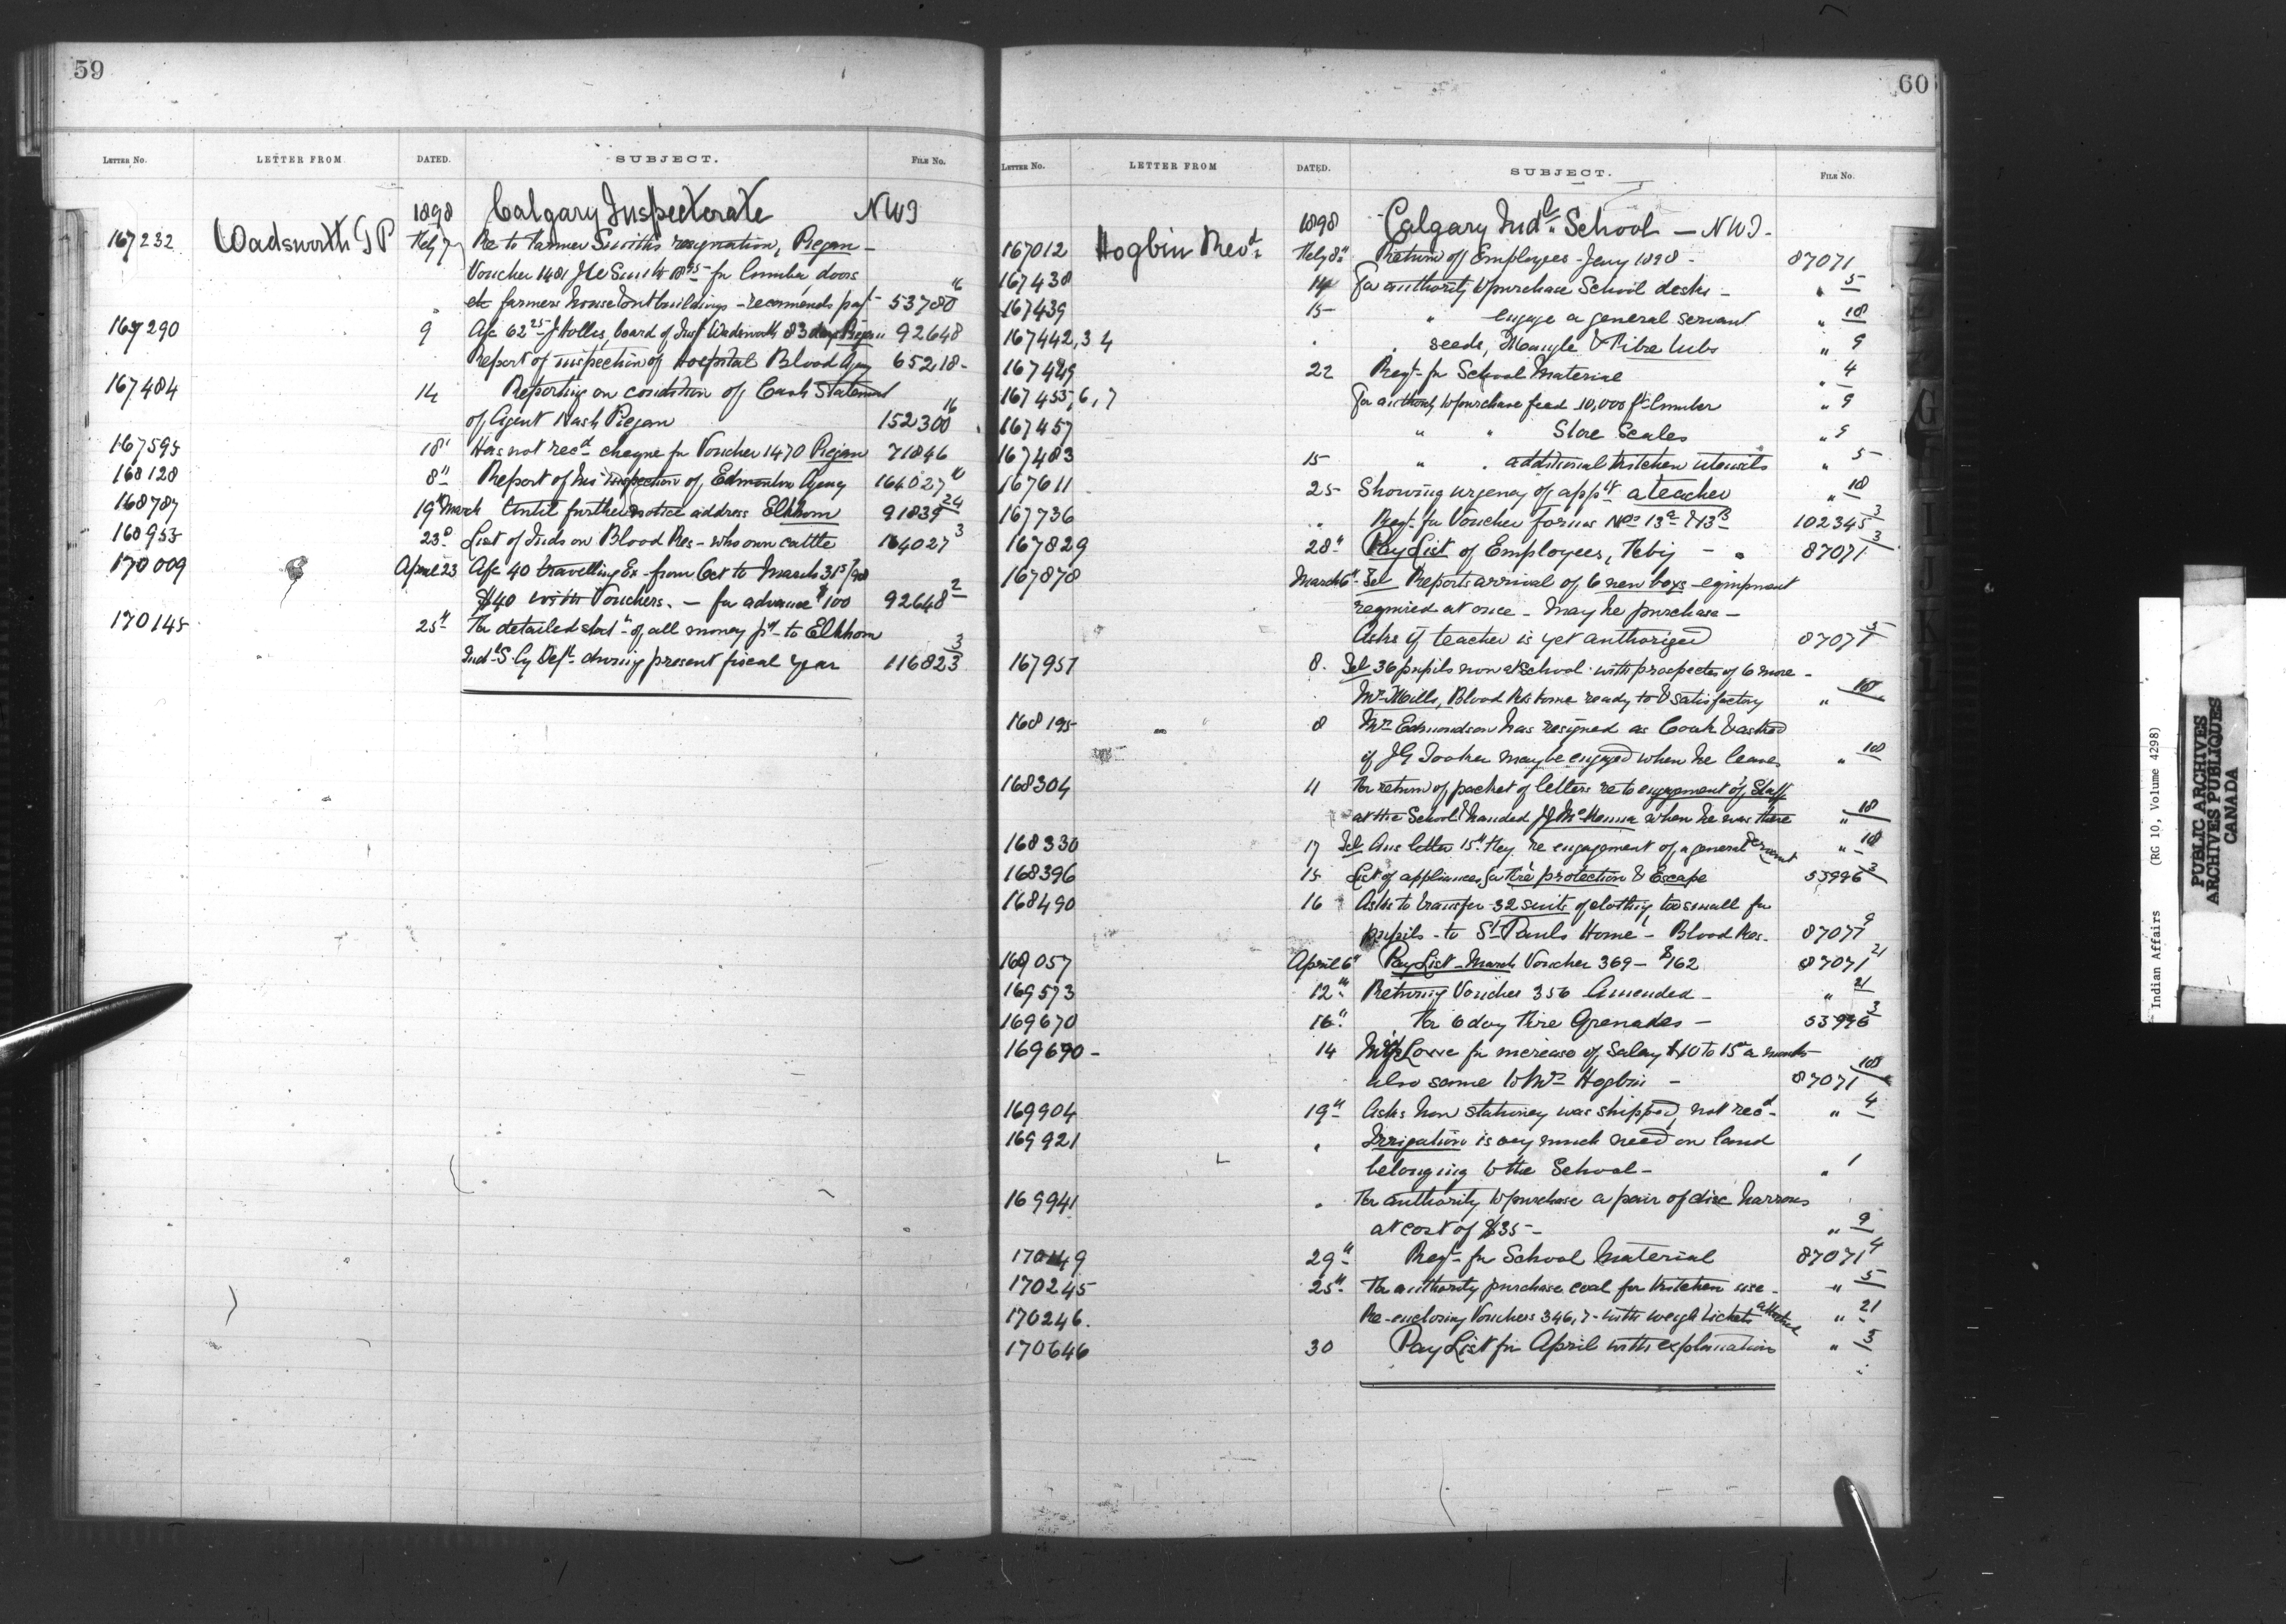 59
LETTER No. LETTER FROM DATED. SUBJECT. FILE No.
1898 Calgary Inspectorate NWT
167232 Wadsworth T P Feby 7 Re to Farmer Smith's resignation, Piegan -
Voucher 1481 Smith 18 for lumber, doors
etc farmers house & outbuildings - recommends payt 53780 16
167290 9 A/c 62 25 Hollis, board of Insp Wadsworth 83 days Piegan 92648
Report of inspection of Hospital Blood Agcy 65218 -
167484 14 Reporting on condition of Cash Statement
of Agent Nash Piegan 152300 16
167595 18 Has not recd cheque for Voucher 1470 Piegan 71846
168128 8" Report of his inspection of Edmonton Agency 164027
168787 19" March Until further notice address Elkhorn 91839 24
168955 23d List of Inds on Blood Res - who own cattle 164027 3
170009 April 23 A/c 40 travelling Ex - from Oct to March 31st/98
$40 with Vouchers. - for advance $100 92648 2
170145 25" For detailed stat of all money pd to Elkhorn
Indl S by Dept during present fiscal year 116823 3
60
LETTER No. LETTER FROM DATED. SUBJECT. FILE No.
1898 Calgary Indl School - NWT -
167012 Hogbin Revd Feby 8" Return of Employees - Jany 1898 - 87071
167438 14 For authority to purchase School desks - " 5
167439 15 - " engage a general servant " 18
167442,3 4 " seeds, Mangle & Fibre tubs " 9
167449 22 Reqt for School Material " 4
167455,6,7 For authority to purchase feed 10,000 ft lumber " 9
167457 " " Store Scales " 9
167483 15 " " additional kitchen utensils " 5
167611 25 Showing urgency of appt a teacher " 18
167736 " Reqt for Voucher forms Nos 13a & 13B 102345 3
167829 28" Pay List of Employees, Feby - 87071 3
167878 March 6" Tel Reports arrival of 6 new boys - equipment
required at once - May he purchase -
Asks if teacher is yet authorized 87071 5
167951 8. Tel 36 pupils now at school with prospects of 6 more -
Mr Mills, Blood Res home ready to & satisfactory " 18
168195 8 Mr Edmondson has resigned as Cook & asked
if J G Tooker may be engaged when he leaves " 18
168304 11 For return of packet of letters re to engagement of Staff
at the School handed J J McKenna when he was there " 18
168330 17 Tel Ans letter 15" Feby re engagement of a general servant " 18
168396 15 List of appliances for Fire protection & Escape 53996 3
168490 16 Asks to transfer 32 suits of clothing too small for
pupils - to St Pauls Home - Blood Res - 87071 9
169057 April 6" Pay List - March Voucher 369 - $162 87071 21
169573 12" Returning Voucher 356 Amended - " 21
169670 16" For 6 doz Fire Grenades - 53996 3
169690 - 14 Lowe for increase of Salary $10 to 15 a month
also same to Mrs Hogbin - 87071 18
169904 19" Asks how stationery was shipped, not recd - " 4
169921 " Irrigation is very much need on land
belonging to the School - " 1
169941 " For authority to purchase a pair of disc harrows
at cost of $35 - " 9
170149 29" Reqt for School Material 87071 4
170245 25" For authority purchase coal for kitchen use - " 5
170246. Re-enclosing Vouchers 346,7 - with weigh tickets attached " 21
170646 30 Pay List for April with explanation " 3
Indian Affairs (RG 10, Volume 4298)
PUBLIC ARCHIVES
ARCHIVES PUBLIQUES
CANADA
G
I
J
K
L